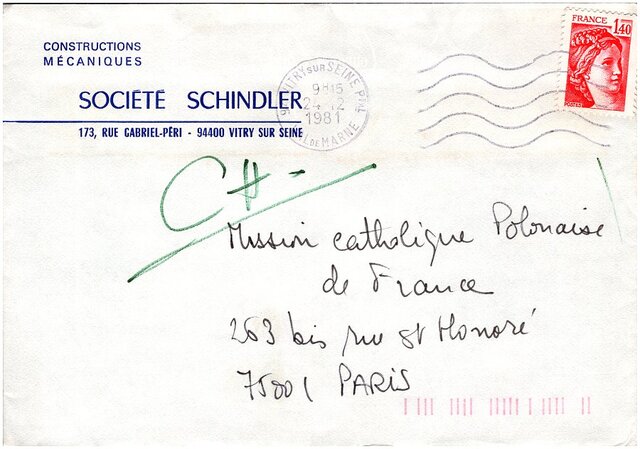 CONSTRUCTIONS
MÉCANIQUES
SOCIÉTÉ SCHINDLER
173, RUE GABRIEL-PÉRI - 94400 VITRY SUR SEINE
VITRY SUR SEINE PAL
9H15
24-12
1981
VAL DE MARNE
FRANCE
1,40
CH-
Mission catholique Polonaise
de France
263 bis rue St Honoré
75001 PARIS